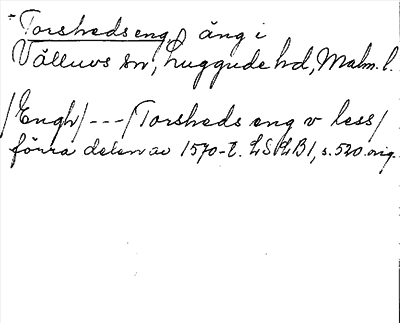 Torshedseng, äng i
Välluvs sn, Luggude hd, Malm. l.
/Engh/ --- /Torsheds eng v less/
förra delen av 1570-t. LSkLB1, s. 520. orig.